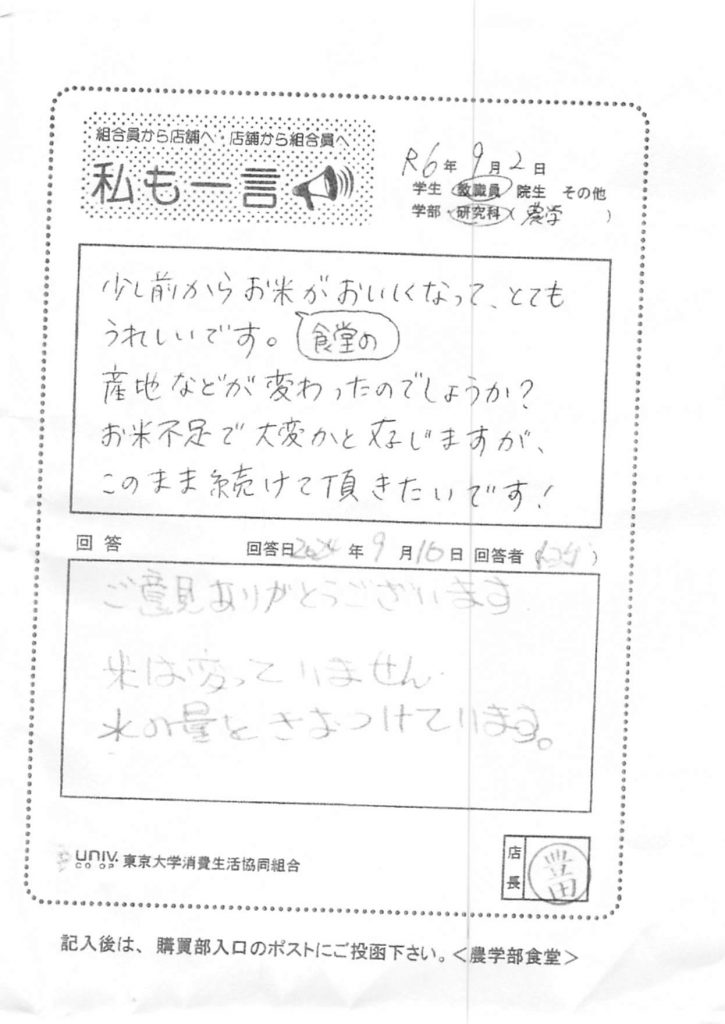 組合員から店舗へ・店舗から組合員へ
私も一言
R6年 9月 2日
学生 教職員 院生 その他
学部・研究科(農学 )
少し前からお米がおいしくなって、とても
うれしいです。 食堂の
産地などが変わったのでしょうか?
お米不足で大変かと存じますが、
このまま続けて頂きたいです!
回答 回答日2024年9月16日 回答者( )
ご意見ありがとうございます
米は変っていません
水の量ときおつけています。
UNIV. CO-OP 東京大学消費生活協同組合
店長 豊田
記入後は、購買部入口のポストにご投函下さい。<農学部食堂>